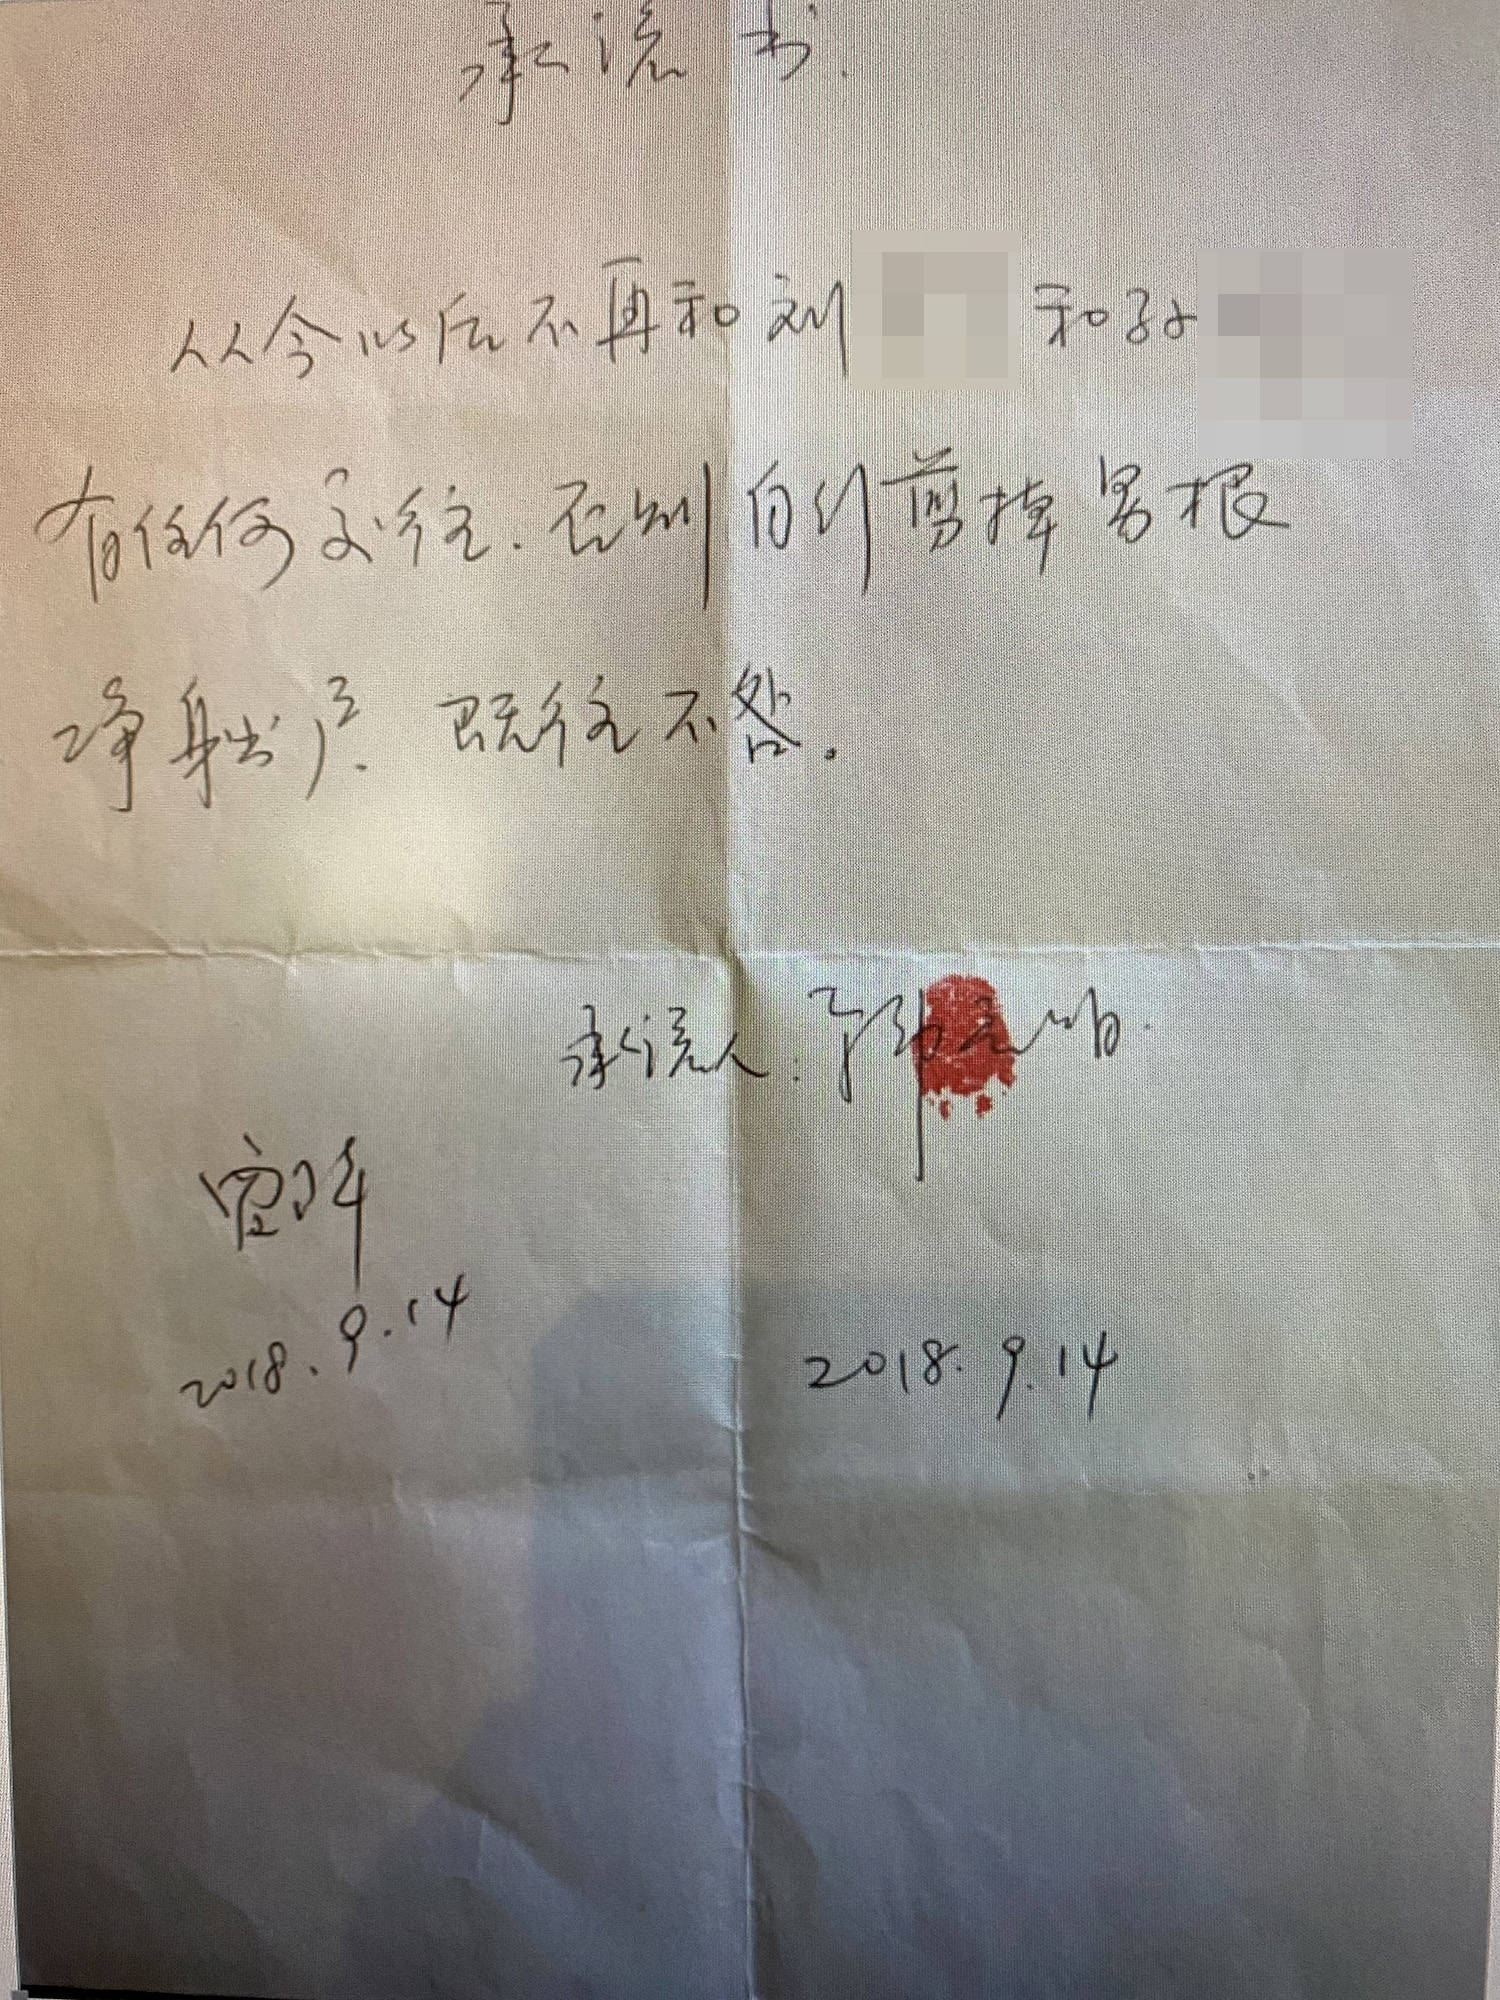 承诺书.
从今以后不再和刘 和孙
有任何交往.否则自行剪掉男根
净身出户.既往不咎.
承诺人:
2018.9.14
2018.9.14